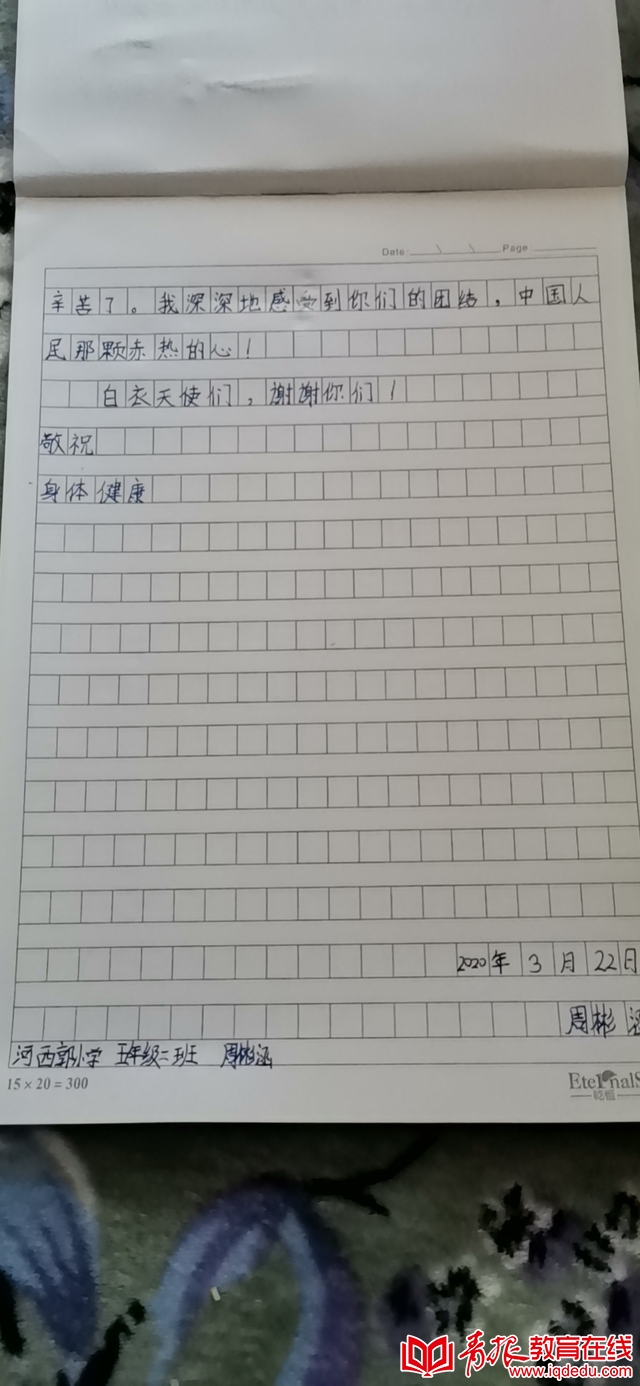 Date \ \ Page
辛苦了。我深深地感受到你们的团结，中国人
民那颗赤热的心！
白衣天使们，谢谢你们！
敬祝
身体健康
2020年3月22日
周彬涵
河西郭小学 五年级二班 周彬涵
15×20=300
EternalS
乾恒
青报教育在线
www.iqdedu.com